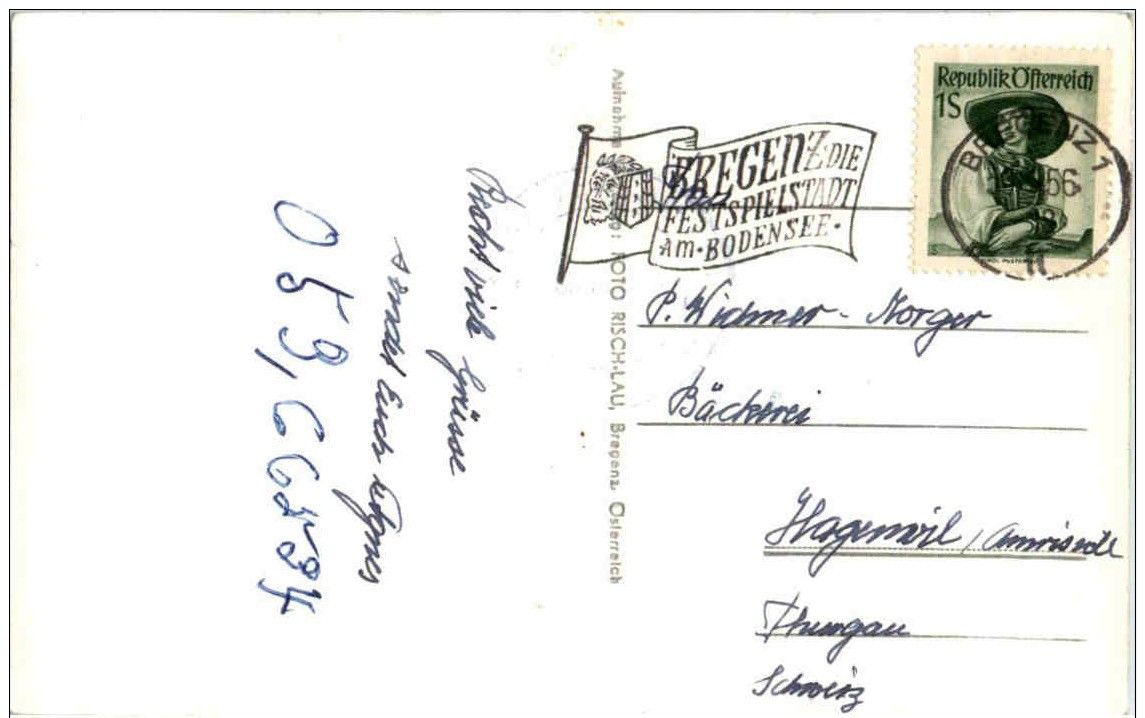 Recht viele Grüsse
sendet Euch Agnes
059,66534
Aufnahme FOTO RISCH-LAU, Bregenz, Österreich
BREGENZ·DIE
FESTSPIELSTADT
·Am·BODENSEE·
Republik Österreich
1S
BREGENZ 1
56
P. Widmer-Norger
Bäckerei
Hagenwil / Amriswil
Thurgau
Schweiz